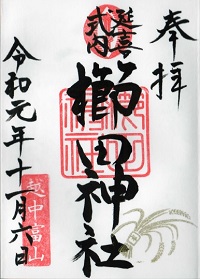 奉拝
延喜式内
櫛田神社
令和元年十一月六日
越中富山